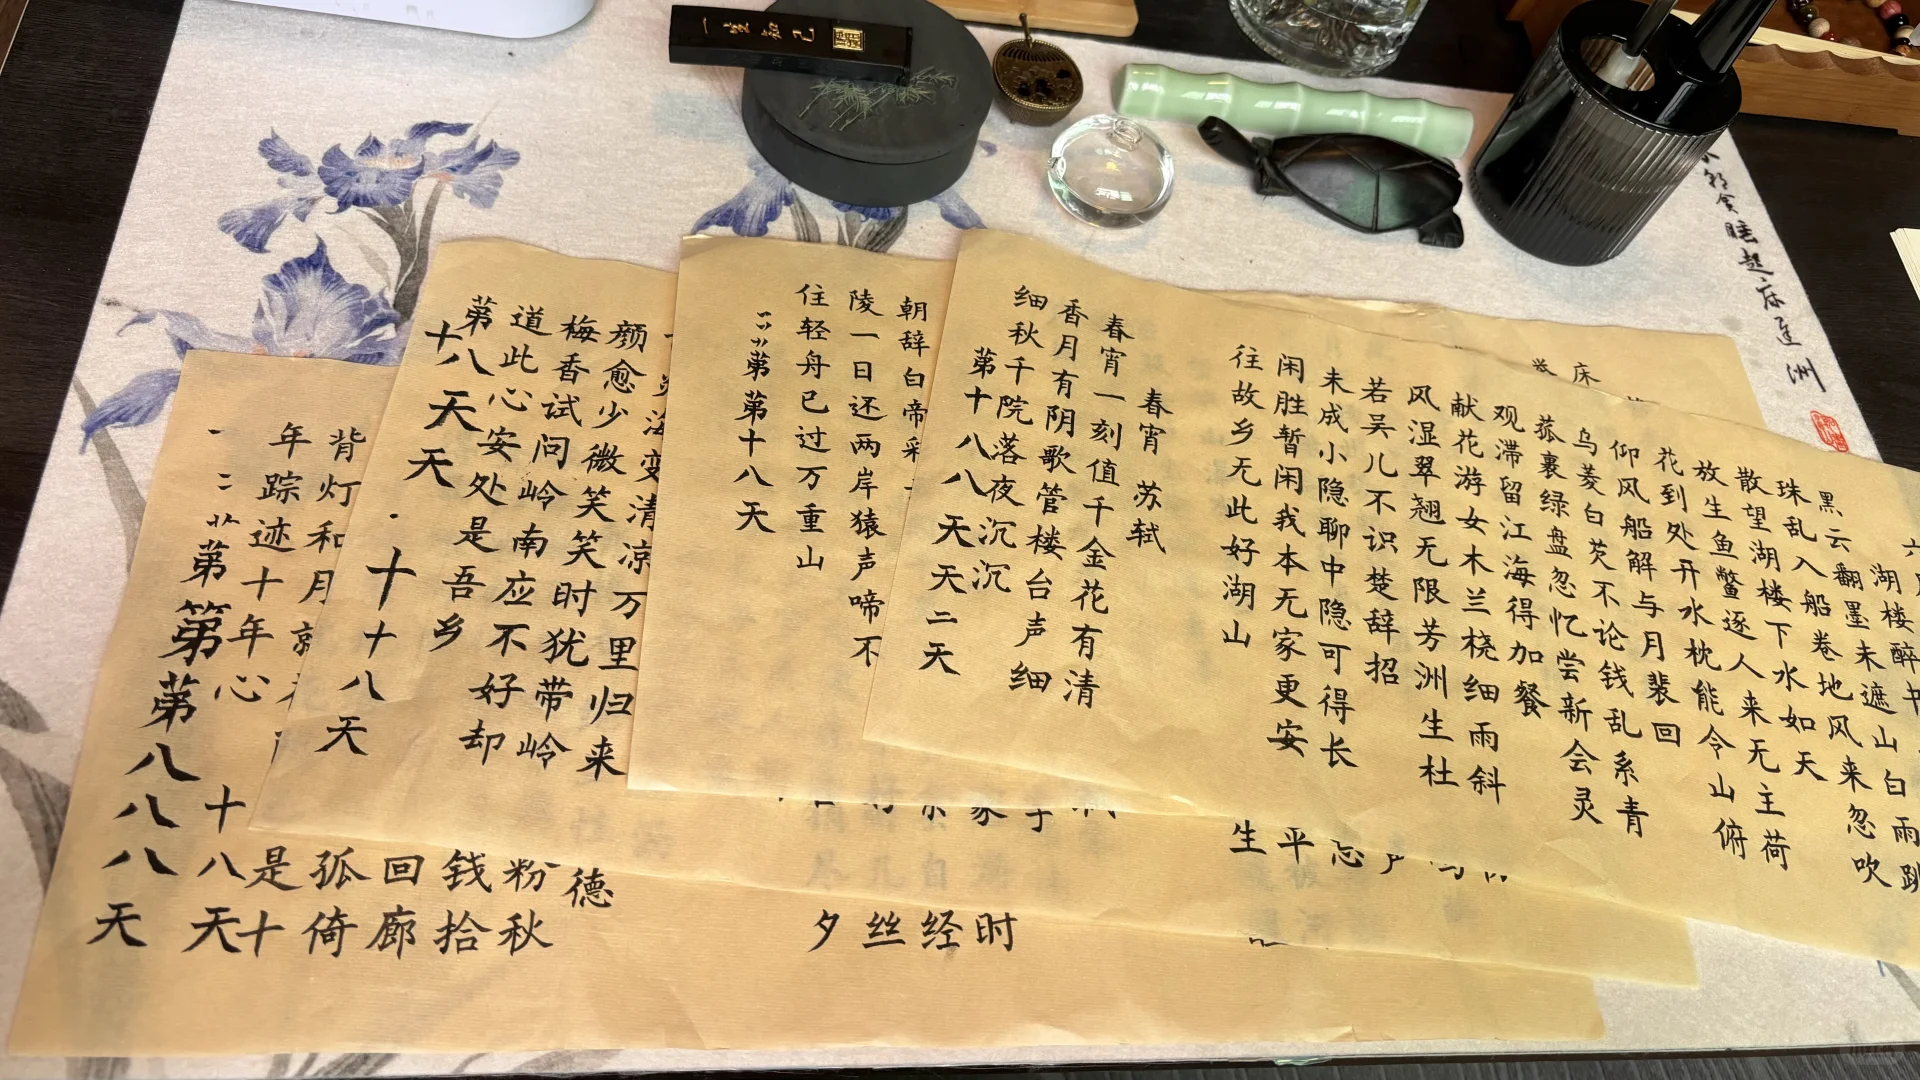 一生知己
春宵 苏轼
春宵一刻值千金花有清
香月有阴歌管楼台声细
细秋千院落夜沉沉
第十八八天天二天
湖楼醉书
黑云翻墨未遮山白雨跳
珠乱入船卷地风来忽吹
散望湖楼下水如天
放生鱼鳖逐人来无主荷
花到处开水枕能令山俯
仰风船解与月裴回
乌菱白芡不论钱乱系青
菰裹绿盘忽忆尝新会灵
观滞留江海得加餐
献花游女木兰桡细雨斜
风湿翠翘无限芳洲生杜
若吴儿不识楚辞招
未成小隐聊中隐可得长
闲胜暂闲我本无家更安
往故乡无此好湖山
朝辞白帝彩
陵一日还两岸猿声啼不
住轻舟已过万重山
第第十八天
海变清凉万里归来
颜愈少微笑笑时犹带岭
梅香试问岭南应不好却
道此心安处是吾乡
第十八天天天
十十八天
背灯和月就
年踪迹十年心
一二
第第第八八八天
十八天
德
粉秋
钱拾
回廊
孤倚
是十
时
经
丝
夕
床